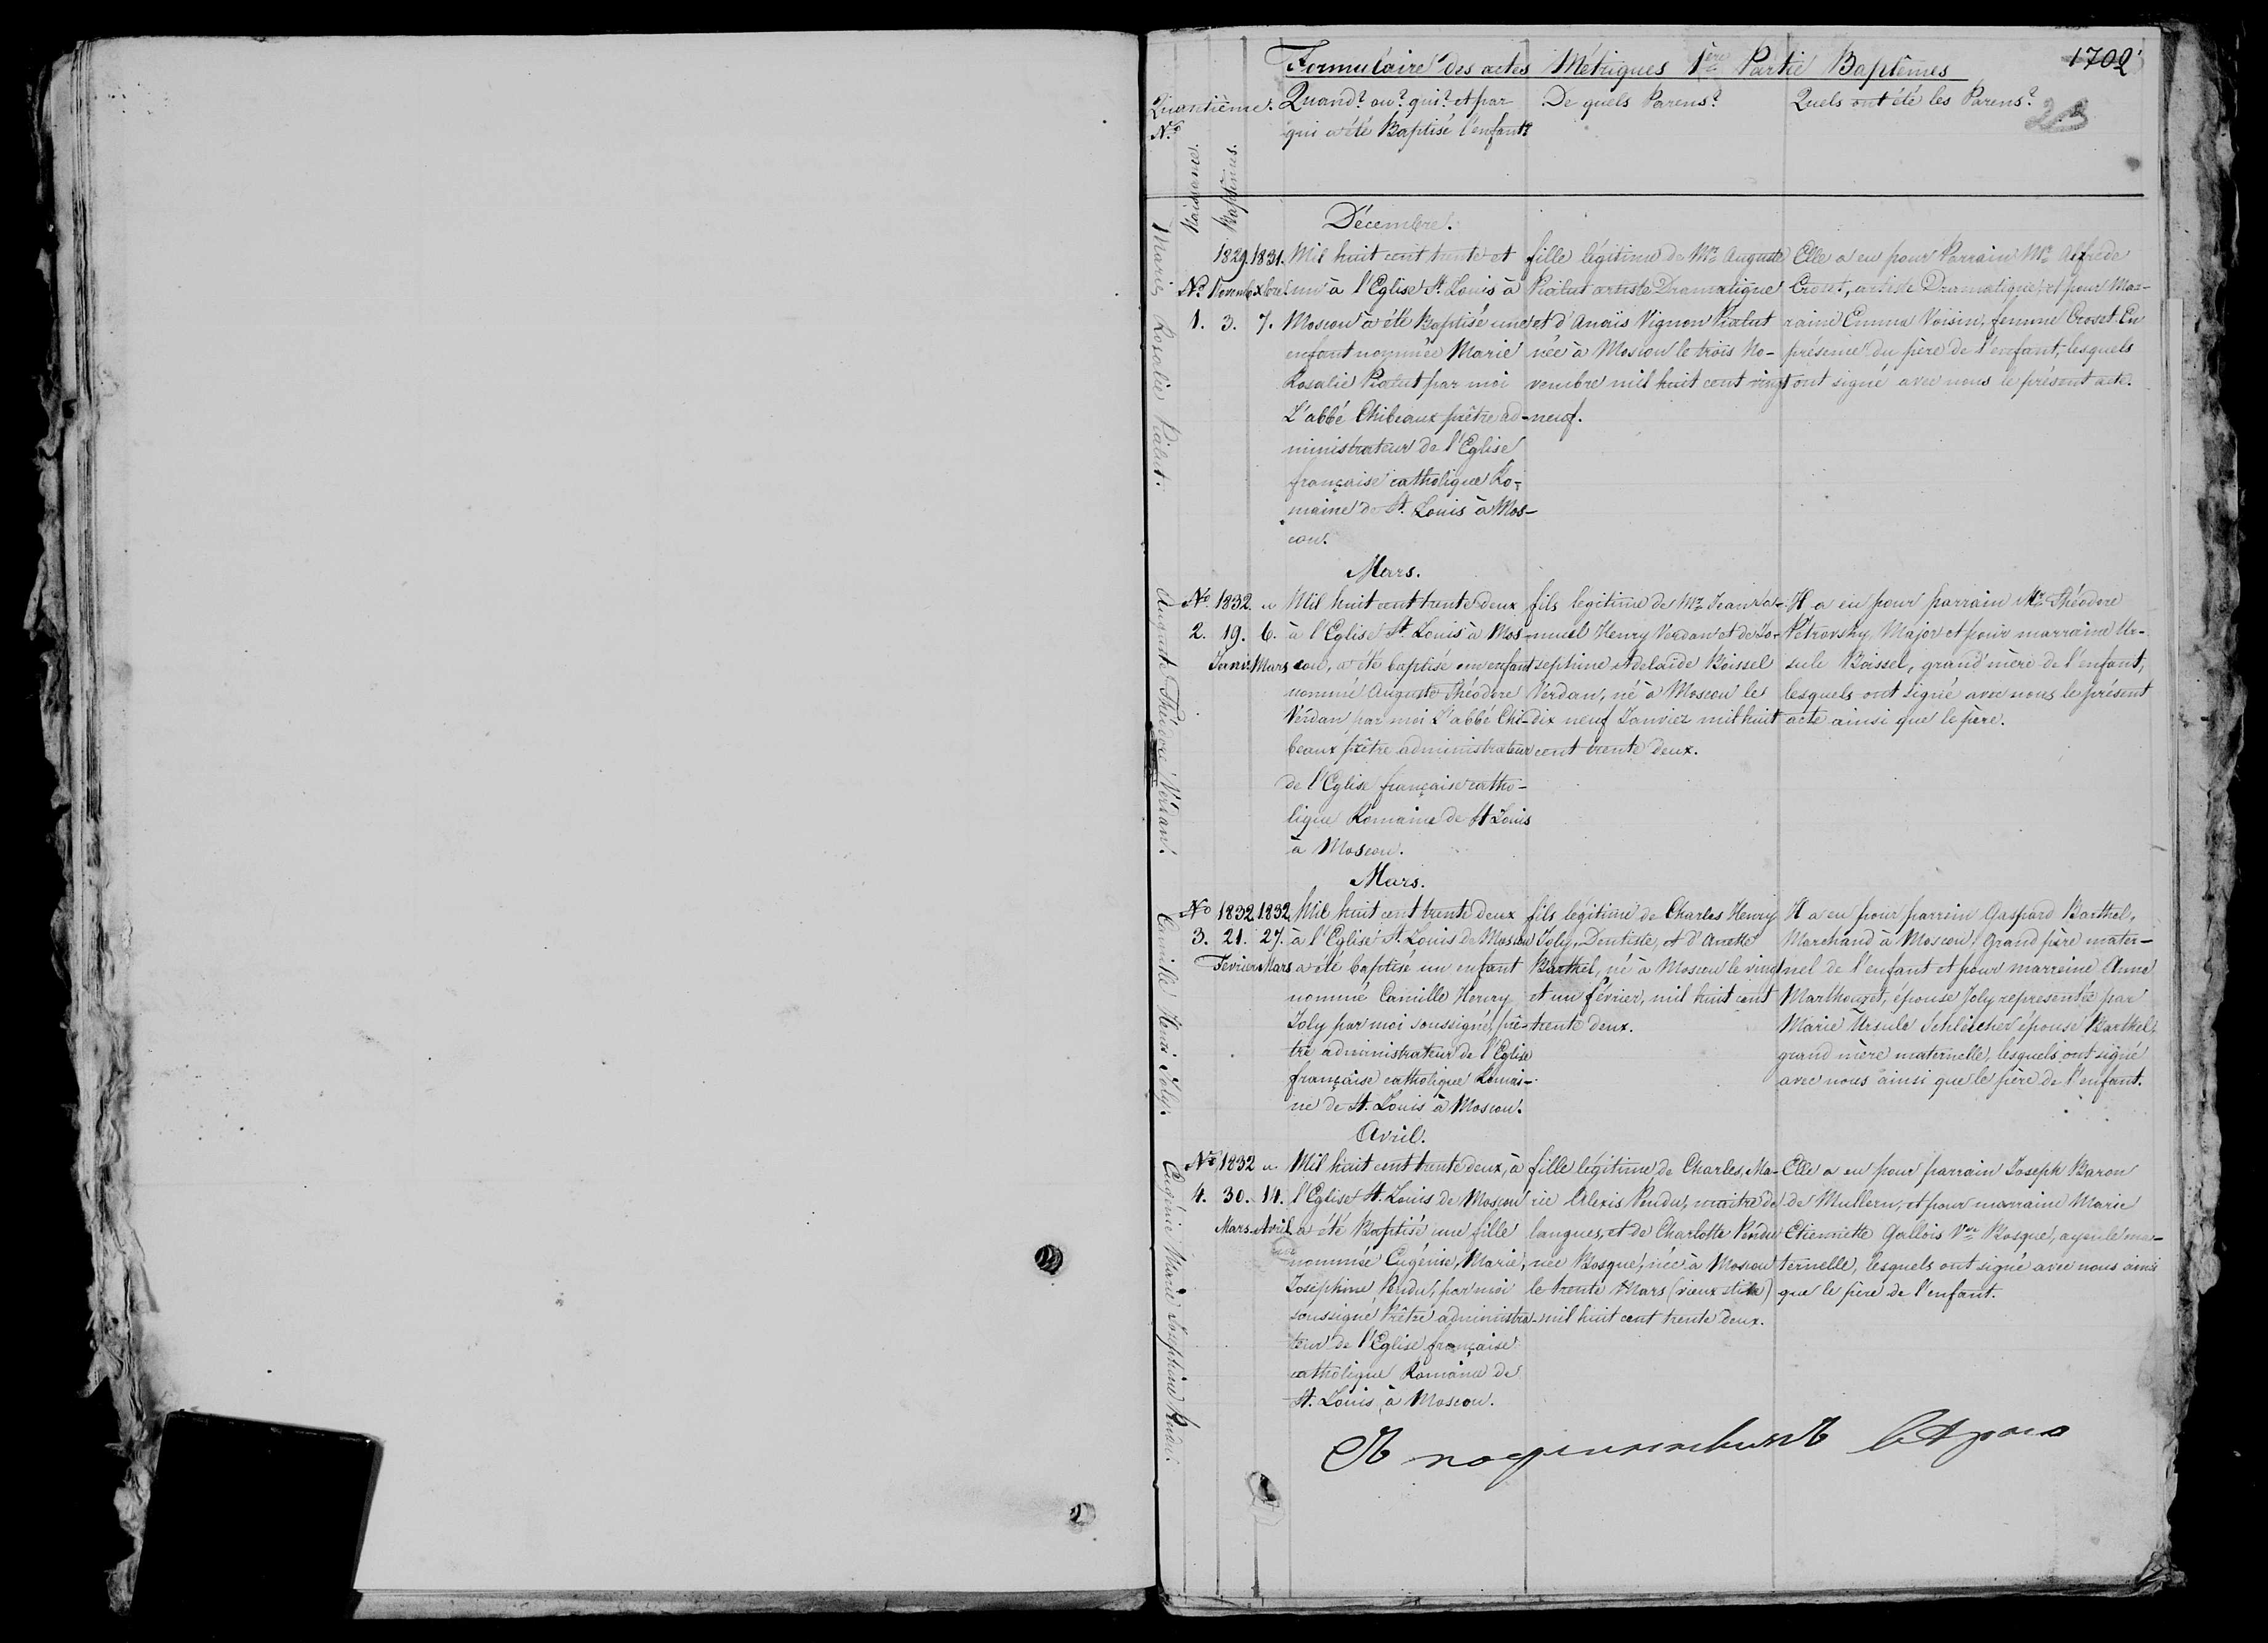 Formulaire des actes Métriques 1ère Partie Baptêmes
1702
23
Quantième.
No
Naissances.
Baptêmes.
Quand? ou? qui? et par
qui a été Baptisé l'enfant?
De quels Parens?
Quels ont été les Parens?
Marie Rosalie Pialut.
Décembre.
1829. 1831.
No Novemb. Xbre.
1. 3. 7.
Mil huit cent trente et
un à l'Eglise St. Louis à
Moscou a été Baptisé une
enfant nommée Marie
Rosalie Pialut par moi
L'abbé Chibeaux prêtre ad-
ministrateur de l'Eglise
française catholique Ro-
maine de St. Louis à Mos-
cou.
fille légitime de Mr Auguste
Pialut artiste Dramatique
et d'Anaïs Vignon Pialut
née à Moscou le trois No-
vembre mil huit cent vingt
neuf.
Elle a eu pour Parrain Mr Alfrede
Croset, artiste Dramatique, et pour Mar-
raine Emma Voisin, femme Croset. En
présence du père de l'enfant, lesquels
ont signé avec nous le présent acte.
Auguste Théodore Verdan.
Mars.
No 1832. "
2. 19. 6.
Janvier Mars
Mil huit cent trente deux
à l'Eglise St. Louis à Mos-
cou, a été baptisé un enfant
nommé Auguste Théodore
Verdan par moi L'abbé Chi-
beaux prêtre administrateur
de l'Eglise française catho-
lique Romaine de St Louis
à Moscou.
fils legitime de Mr Jean Sa-
muel Henry Verdan et de Jo-
sephine Adelaide Boissel
Verdan, né à Moscou le
dix neuf Janvier mil huit
cent trente deux.
Il a eu pour parrain Mr Théodore
Pétrovsky, Major et pour marraine Ur-
sule Boissel, grand'mère de l'enfant,
lesquels ont signé avec nous le présent
acte ainsi que le père.
Camille Henri Joly.
Mars.
No 1832 1832
3. 21. 27.
Fevrier Mars
Mil huit cent trente deux
à l'Eglise St. Louis de Moscou
a été baptisé un enfant
nommé Camille Henry
Joly par moi soussigné, prê-
tre administrateur de l'Eglise
française catholique Romai-
ne de St. Louis à Moscou.
fils legitime de Charles Henry
Joly, Dentiste, et d'Anette
Barthel, né à Moscou le vingt
et un février, mil huit cent
trente deux.
Il a eu pour parrein Gaspard Barthel,
Marchand à Moscou, Grand père mater-
nel de l'enfant et pour marreine Anne
Marthouzet, épouse Joly representée par
Marie Ursule Schleicher épouse Barthel,
grand mère maternelle, lesquels ont signé
avec nous ainsi que le père de l'enfant.
Eugénie Marie Joséphine Pendu.
Avril.
No 1832 "
4. 30. 14.
Mars. Avril
Mil huit cent trente deux, à
l'Eglise St. Louis de Moscou
a été Baptisé une fille
nommée Eugénie, Marie,
Joséphine Pendu, par moi
soussigné Prêtre administra-
teur de l'Eglise française
catholique Romaine de
St. Louis, à Moscou.
fille légitime de Charles, Ma-
rie Alexis Pendu, maitre de
langues, et de Charlotte Pendu
née Bosqué, née à Moscou
le trente Mars (vieux stile)
mil huit cent trente deux.
Elle a eu pour parrain Joseph Baron
de Mullern, et pour marraine Marie
Etiennette Gallois Vve Bosqué, ayeule ma-
ternelle, lesquels ont signé avec nous ainsi
que le père de l'enfant.